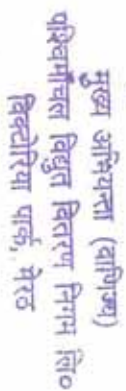 मुख्य अभियन्ता (वाणिज्य)
पश्चिमाँचल विद्युत वितरण निगम लि०
विक्टोरिया पार्क, मेरठ